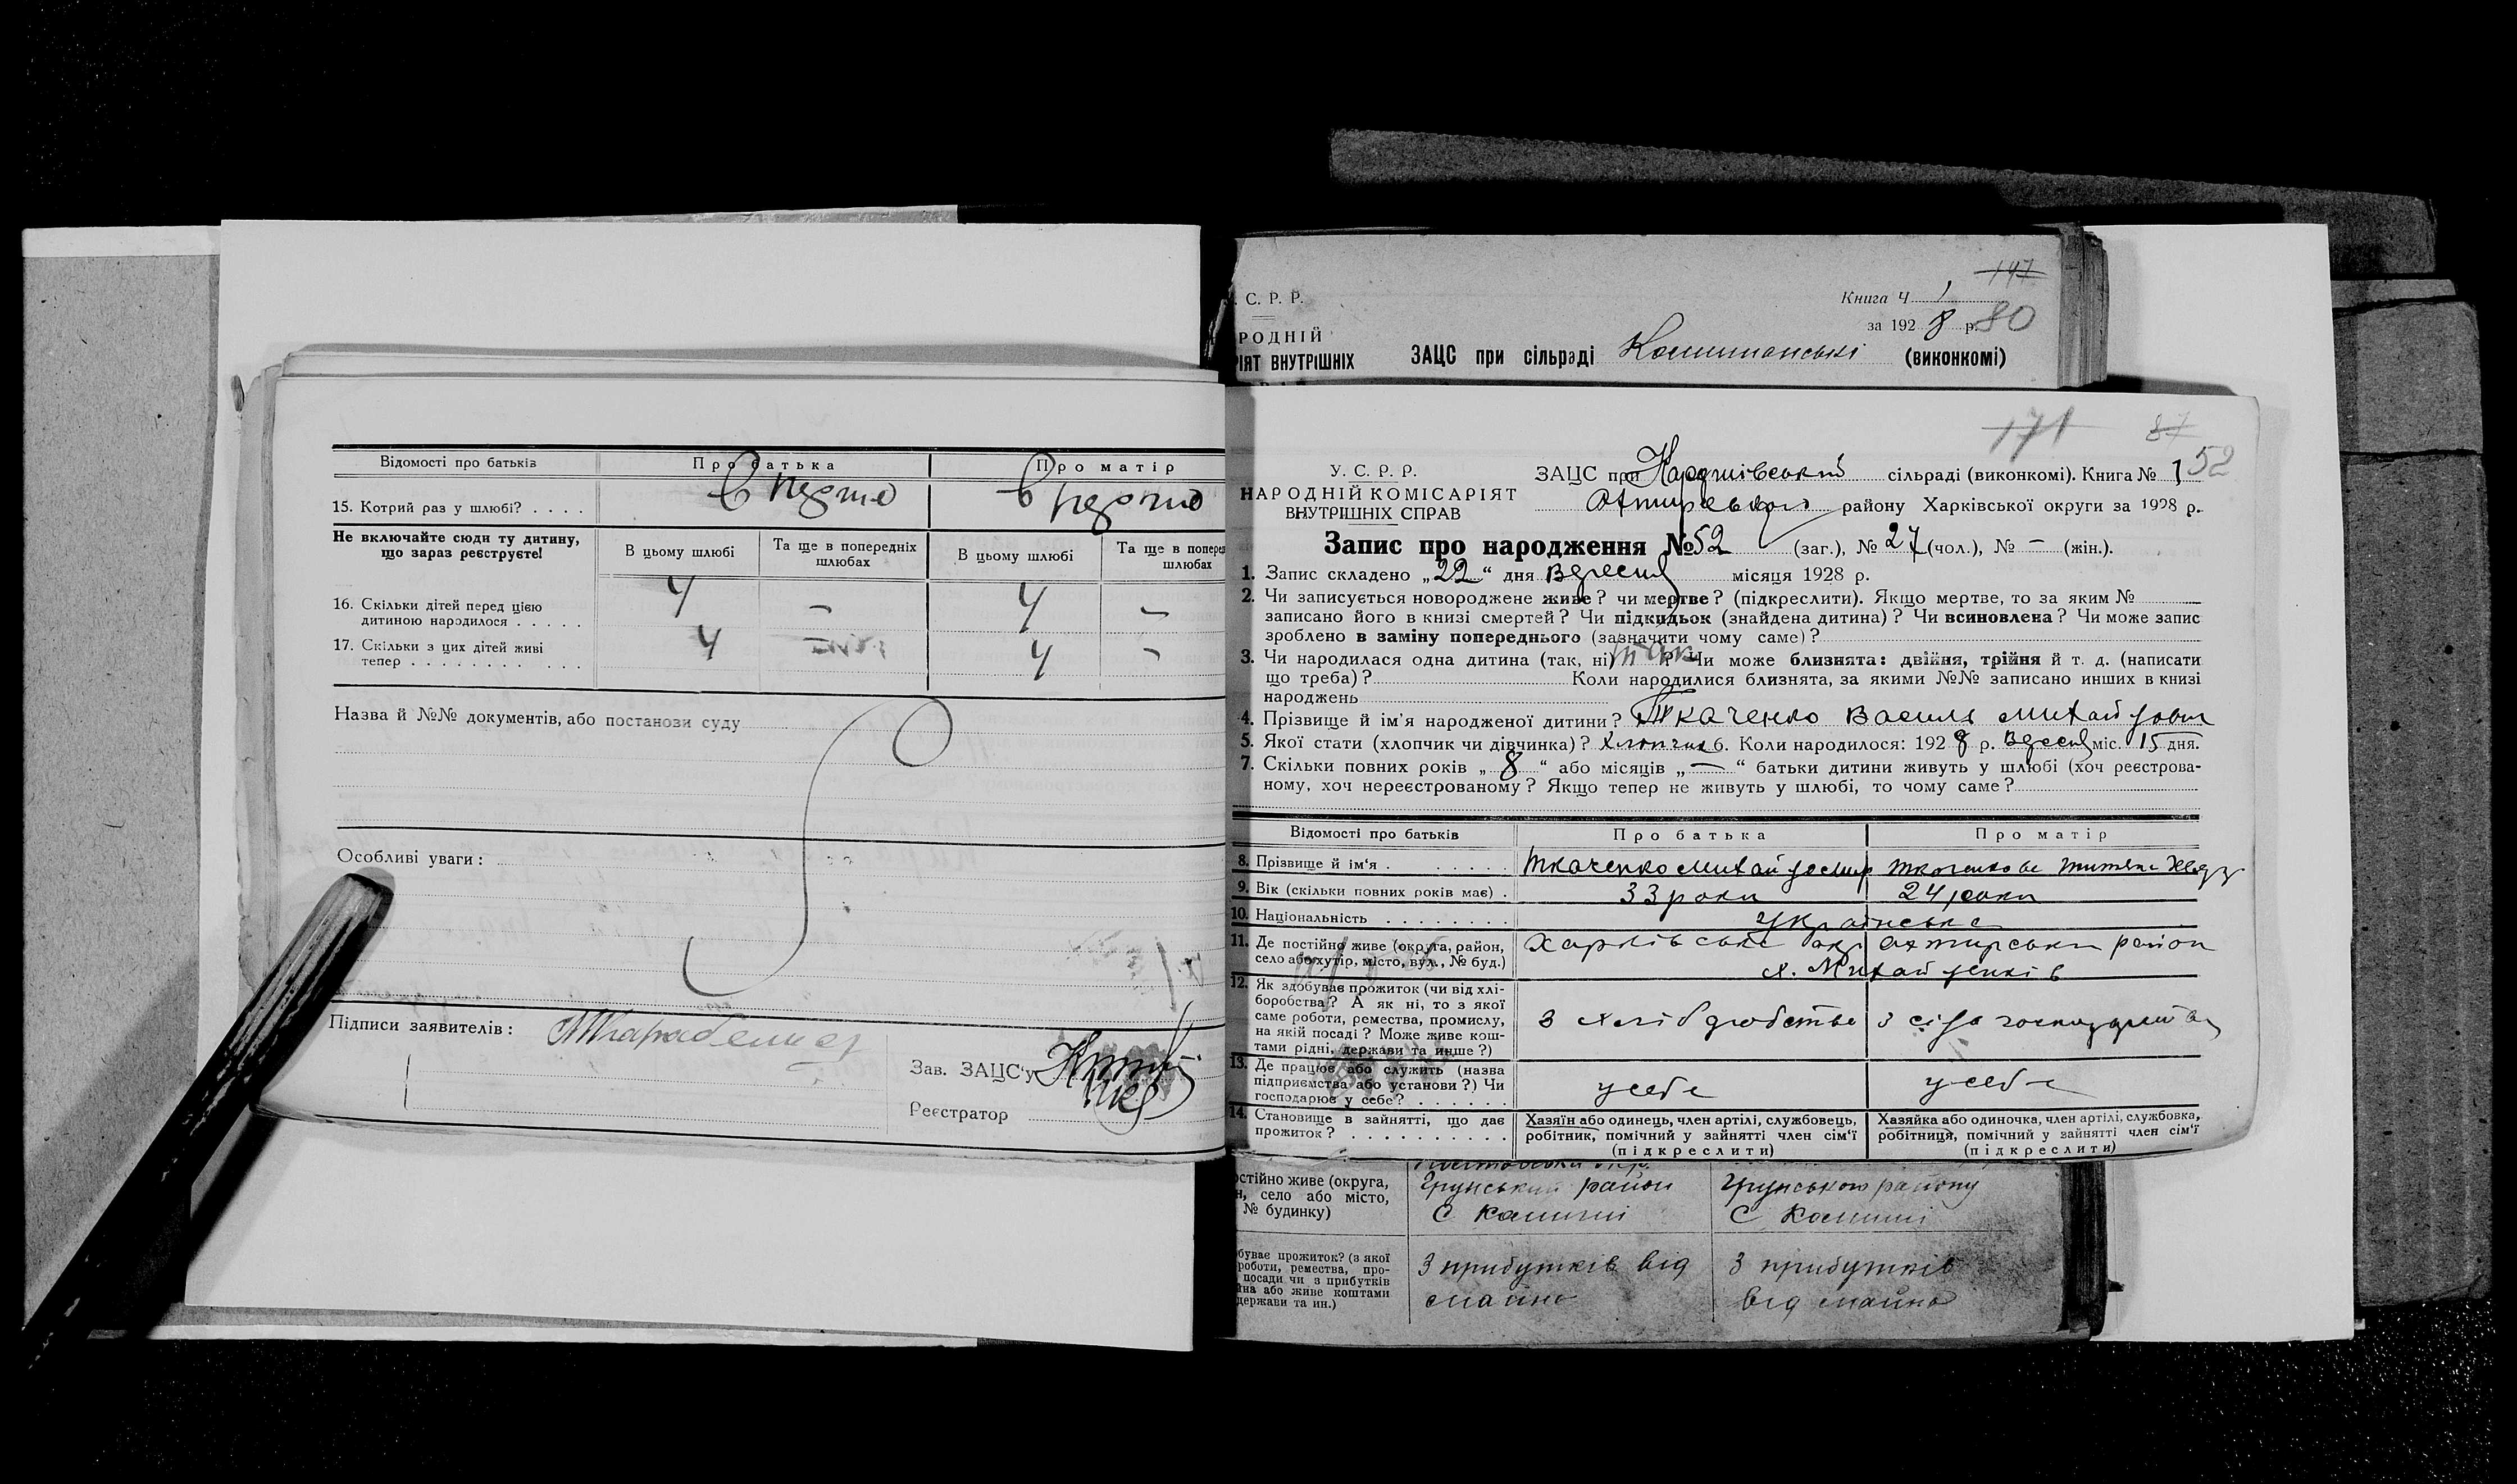 Відомості про батьків
Про батька
Про матір
15. Котрий раз у шлюбі? . . . .
в перше
в перше
Не включайте сюди ту дитину,
що зараз реєструєте!
В цьому шлюбі
Та ще в попередніх
шлюбах
В цьому шлюбі
Та ще в попере
шлюбах
16. Скільки дітей перед цією
дитиною народилося . . . . .
4
—
4
—
17. Скільки з цих дітей живі
тепер . . . . . . . . . . .
4
—
4
—
Назва й №№ документів, або постанови суду
Особливі уваги:
Підписи заявителів:
Зав. ЗАЦС'у
Реєстратор
С. Р. Р.
Книга Ч 1
147
за 1928 р.
80
РОДНІЙ
ІЯТ ВНУТРІШНІХ
ЗАЦС при сільраді
(виконкомі)
171
87
52
У. С. Р. Р.
НАРОДНІЙ КОМІСАРІЯТ
ВНУТРІШНІХ СПРАВ
ЗАЦС при сільраді (виконкомі). Книга № 1
району Харківської округи за 1928 р.
Запис про народження № 52 (заг.), № 27 (чол.), № — (жін.).
1. Запис складено „22“ дня Вересня місяця 1928 р.
2. Чи записується новороджене живе? чи мертве? (підкреслити). Якщо мертве, то за яким №
записано його в книзі смертей? Чи підкидьок (знайдена дитина)? Чи всиновлена? Чи може запис
зроблено в заміну попереднього (зазначити чому саме)?
3. Чи народилася одна дитина (так, ні) так? Чи може близнята: двійня, трійня й т. д. (написати
що треба)? Коли народилися близнята, за якими №№ записано инших в книзі
народжень
4. Прізвище й ім'я народженої дитини? Ткаченко Василь Михайлович
5. Якої стати (хлопчик чи дівчинка)? Хлопчик 6. Коли народилося: 1928 р. Вересня міс. 15 дня.
7. Скільки повних років „8“ або місяців „—“ батьки дитини живуть у шлюбі (хоч реєстрова-
ному, хоч нереєстрованому? Якщо тепер не живуть у шлюбі, то чому саме?
Відомості про батьків
Про батька
Про матір
8. Прізвище й ім'я . . . . . .
Ткаченко Михайло
9. Вік (скільки повних років має) .
33 роки
24 роки
10. Національність . . . . . . . .
Українська
11. Де постійно живе (округа, район,
село або хутір, місто, вул., № буд.)
Харківська окр Охтирськи район
х. Михайленків
12. Як здобуває прожиток (чи від хлі-
боробства? А як ні, то з якої
саме роботи, ремества, промислу,
на якій посаді? Може живе кош-
тами рідні, держави та инше?)
З хліборобства
13. Де працює або служить (назва
підприємства або установи?) Чи
господарює у себе? . . . . . .
у себе
у себе
14. Становище в зайнятті, що дає
прожиток? . . . . . . . . . .
Хазяїн або одинець, член артілі, службовець,
робітник, помічний у зайнятті член сім'ї
(підкреслити)
Хазяйка або одиночка, член артілі, службовка,
робітниця, помічний у зайнятті член сім'ї
(підкреслити)
остійно живе (округа,
н, село або місто,
№ будинку)
Грунський район
Грунського району
буває прожиток? (з якої
роботи, ремества, про-
посади чи з прибутків
йна або живе коштами
держави та ин.)
З прибутків від
майна
З прибутків
від майна